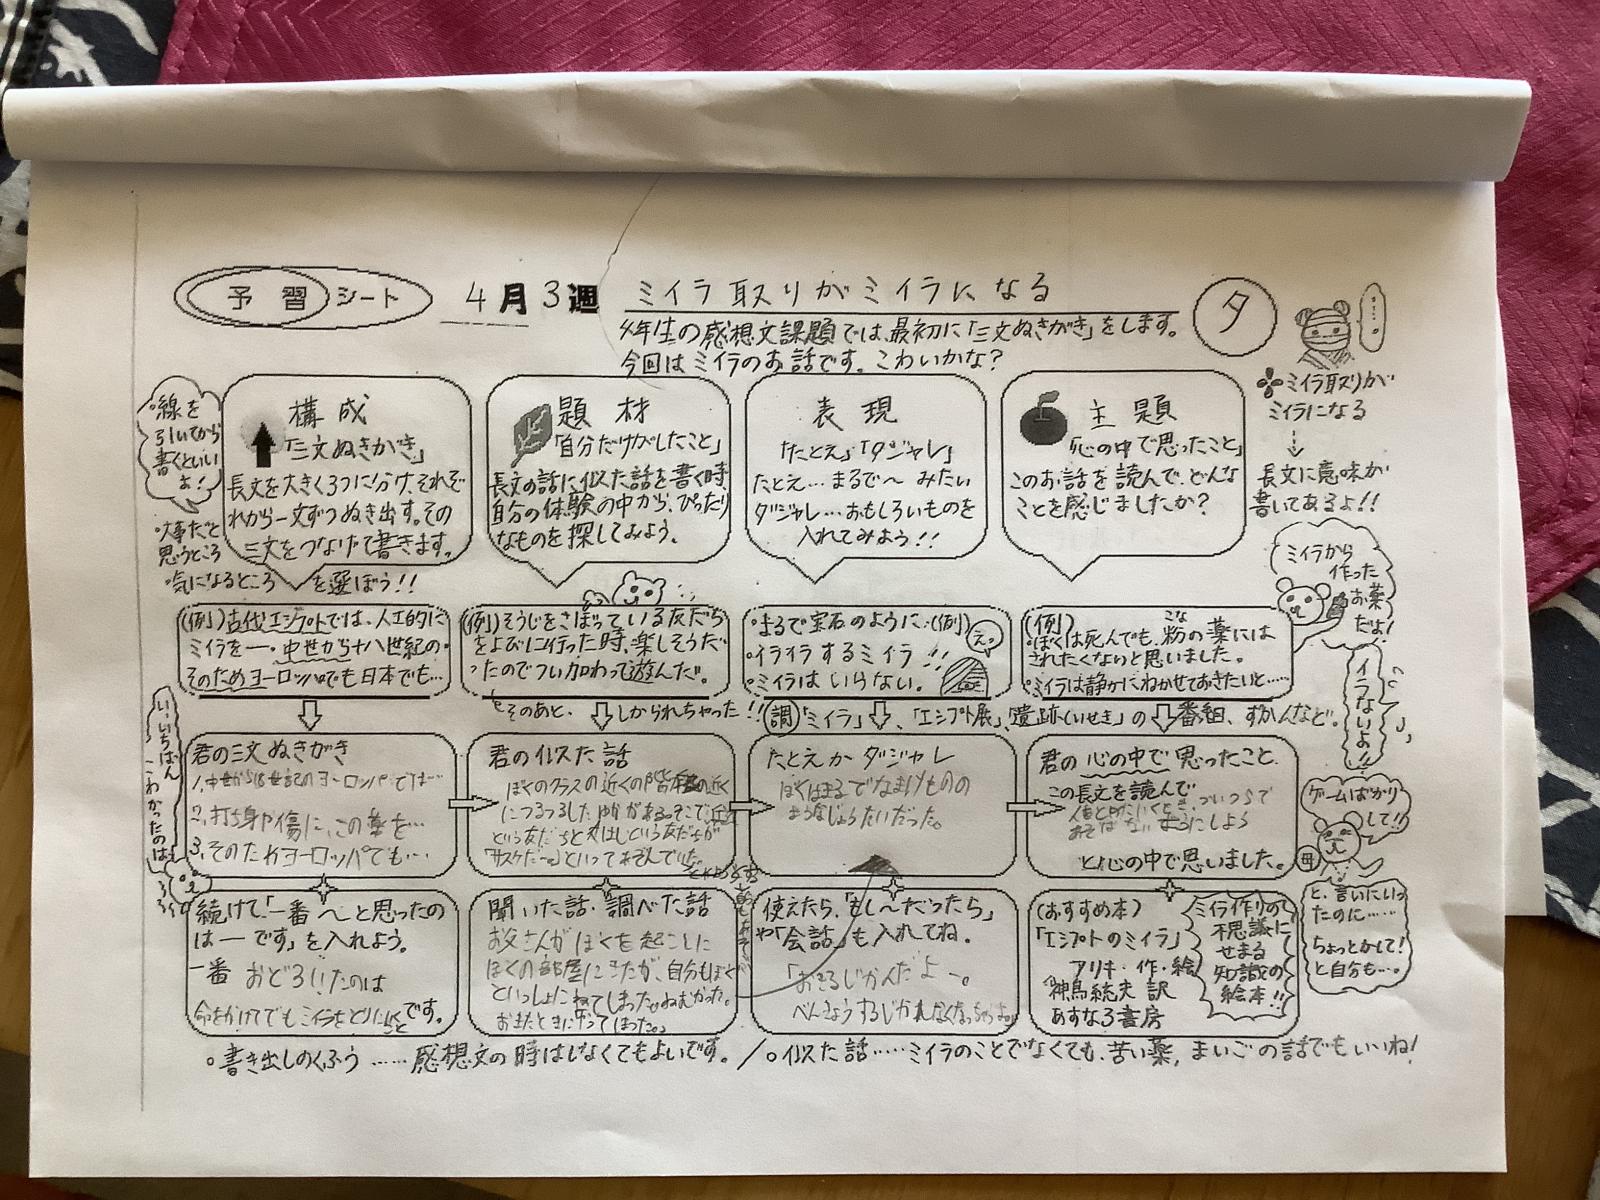 予習シート 4月3週 ミイラ取りがミイラになる 夕
4年生の感想文課題では、最初に「三文ぬきがき」をします。
今回はミイラのお話です。こわいかな？
……
・ミイラ取りが
ミイラになる
↓
長文に意味が
書いてあるよ！！
・線を
引いてから
書くといい
よ！
・大事だと
思うところ
・気になるところ を選ぼう！！
構成
「三文ぬきがき」
長文を大きく3つに分け、それぞ
れから一文ずつぬき出す。その
三文をつなげて書きます。
題材
「自分だけがしたこと」
長文の話に似た話を書く時、
自分の体験の中から、ぴったり
なものを探してみよう。
表現
「たとえ」「ダジャレ」
たとえ…まるで〜みたい
ダジャレ…おもしろいものを
入れてみよう！！
主題
「心の中で思ったこと」
このお話を読んで、どんな
ことを感じましたか？
ミイラから
作った
お薬
だよ！
(例)古代エジプトでは、人工的に
ミイラを一・中世から十八世紀の・
そのためヨーロッパでも日本でも…
(例)そうじをさぼっている友だち
をよびに行った時、楽しそうだ
ったのでつい加わって遊んだ。
そのあと、しかられちゃった！！
・まるで宝石のように・(例)
・イライラするミイラ！！
・ミイラはいらない。
えっ
(例)
・ぼくは死んでも、粉の薬には
こな
されたくないと思いました。
・ミイラは静かにねかせておきたいと……
調「ミイラ」、「エジプト展」、「遺跡(いせき)」の番組、ずかんなど。
イラないよ！！
い・いちばん
こわかったのは
君の三文ぬきがき
1.中世から18世紀のヨーロッパでは…
2.打ち身や傷に、この薬を…
3.そのためヨーロッパでも…
君の似た話
ぼくのクラスの近くの
につるつるしたゆかがある。そこで
という友だちと
といってあそんでいた。
たとえかダジャレ
ぼくはまるでなまけものの
ようなじょうたいだった。
君の心の中で思ったこと
この長文を読んで
あそばないようにしよう
と心の中で思いました。
ゲームばかり
して！！
母
と、言いにいっ
たのに……
ちょっとかして！
と自分も…。
続けて「一番〜と思ったの
は―です」を入れよう。
一番 おどろいたのは
命をかけてでもミイラをとりにいくです。
聞いた話・調べた話
お父さんがぼくを起こしに
ぼくの部屋にきたが、自分もぼく
といっしょにねてしまった。ねむかった。
使えたら、「もし〜だったら」
や「会話」も入れてね。
「おきるじかんだよー。
べんきょうするじかんなくなっちゃうよ。
(おすすめ本)
「エジプトのミイラ」
アリキ・作・絵
神鳥統夫 訳
あすなろ書房
ミイラ作りの
不思議に
せまる
知識の
絵本！！
・書き出しのくふう……感想文の時はしなくてもよいです。／・似た話……ミイラのことでなくても、苦い薬、まいごの話でもいいね！